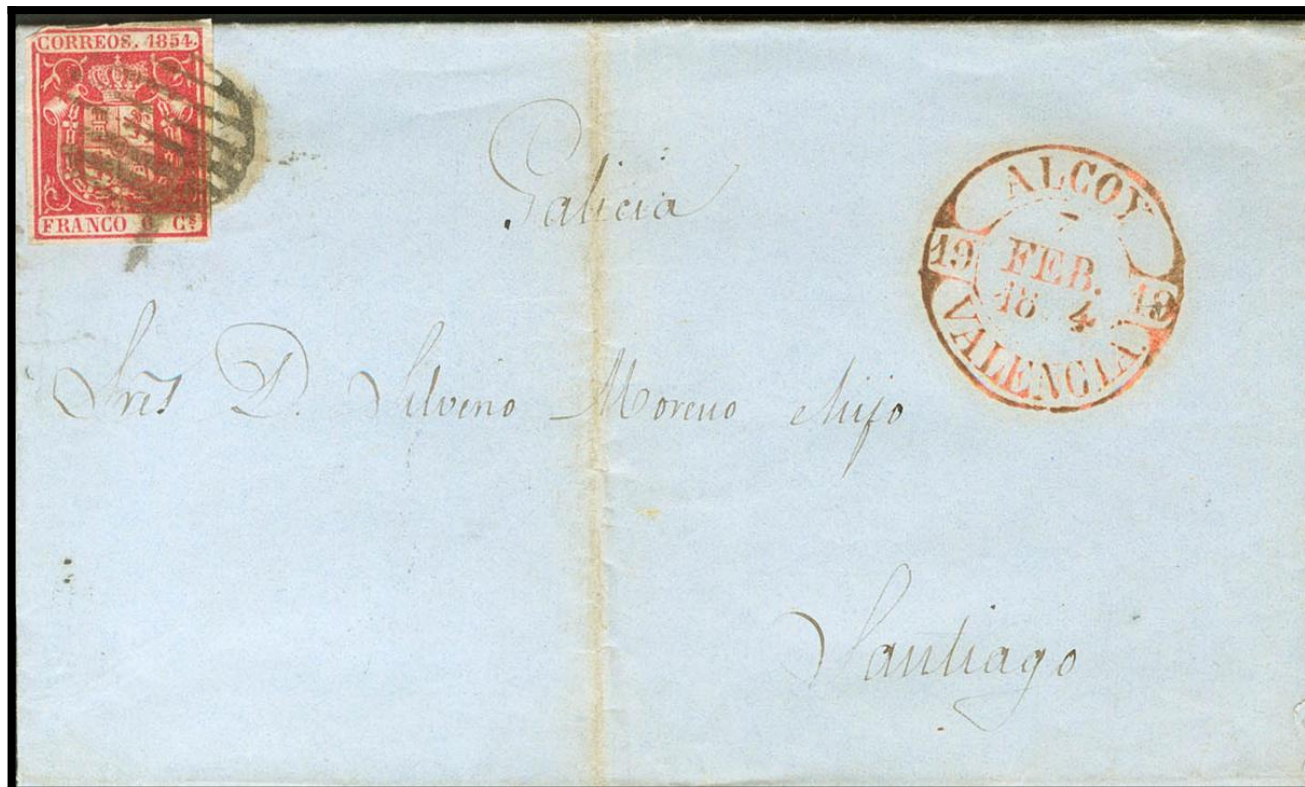 CORREOS. 1854.
FRANCO 6 Cs
Galicia
ALCOY
7
FEB.
18 4
19 19
VALENCIA
Sres D. Silverio Moreno e hijo
Santiago